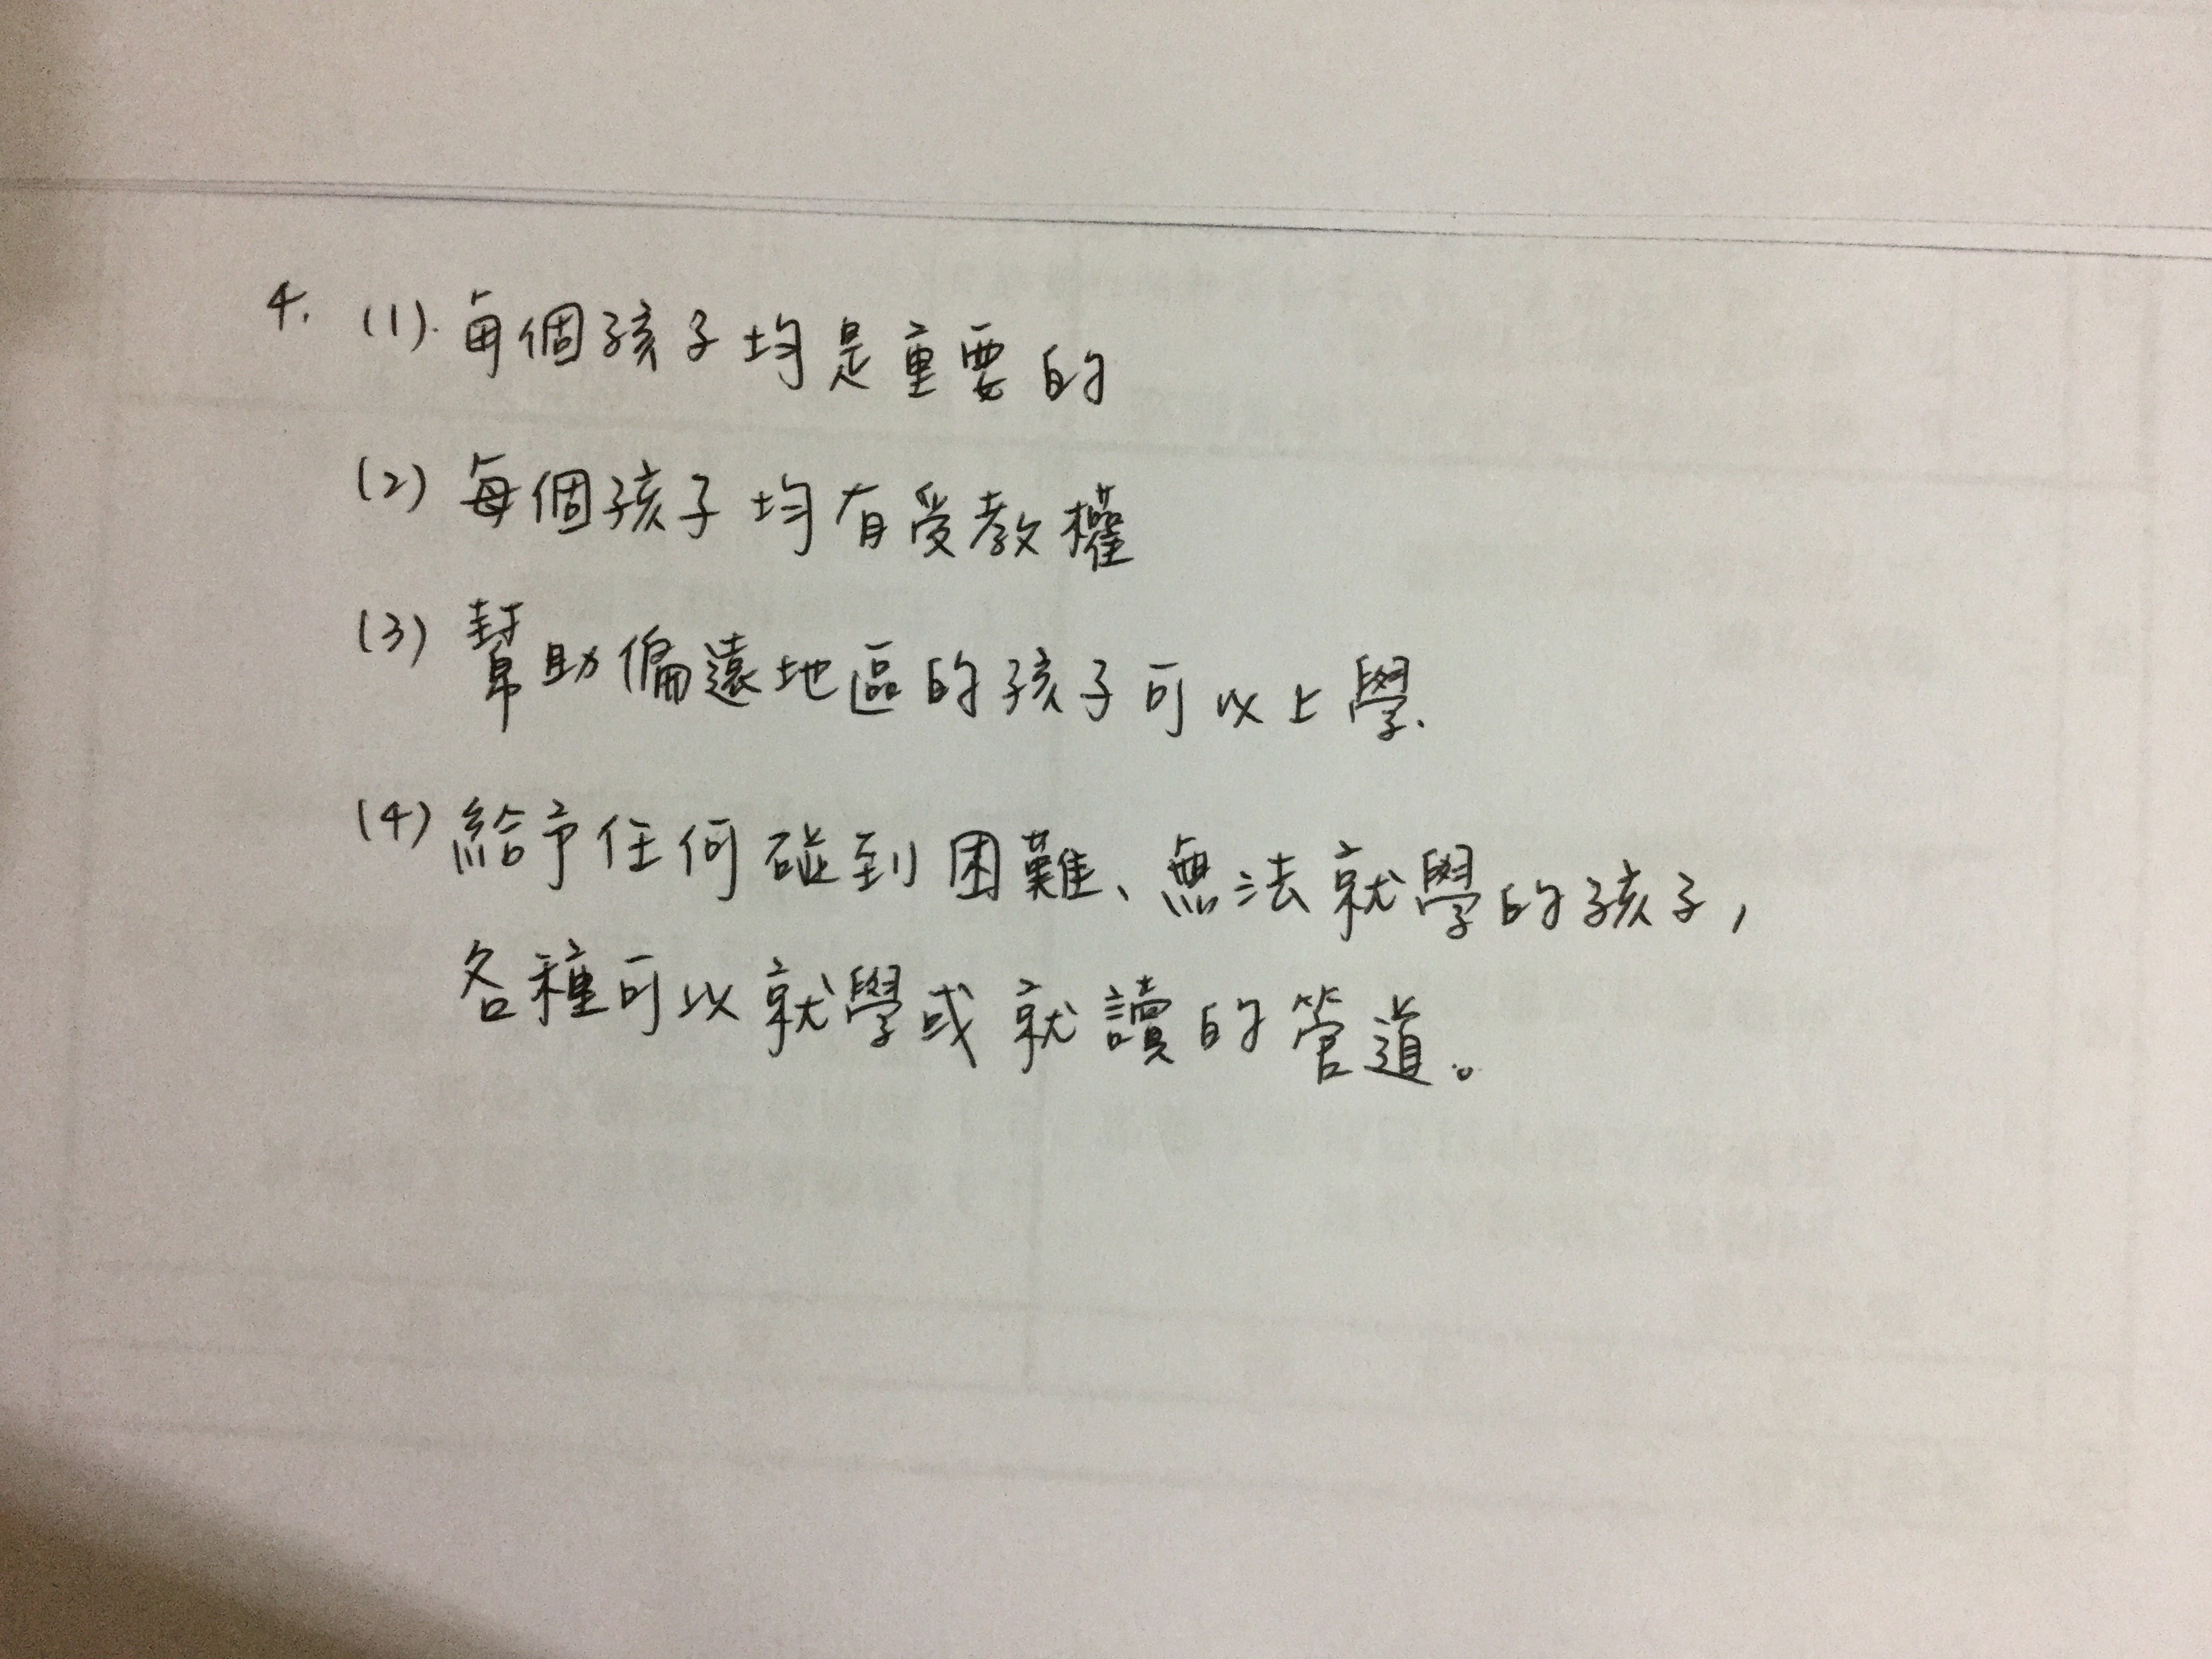 4. (1). 每個孩子均是重要的
(2) 每個孩子均有受教權
(3) 幫助偏遠地區的孩子可以上學.
(4) 給予任何碰到困難、無法就學的孩子，
各種可以就學或就讀的管道。